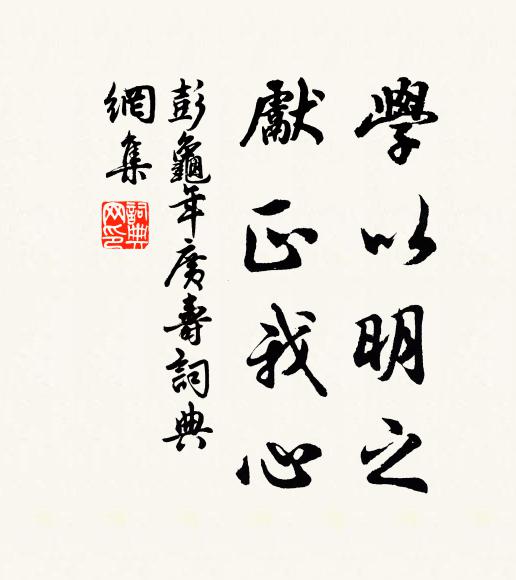 學以明之
獻正我心
彭龜年廣壽詞典
網集
詞典
网印